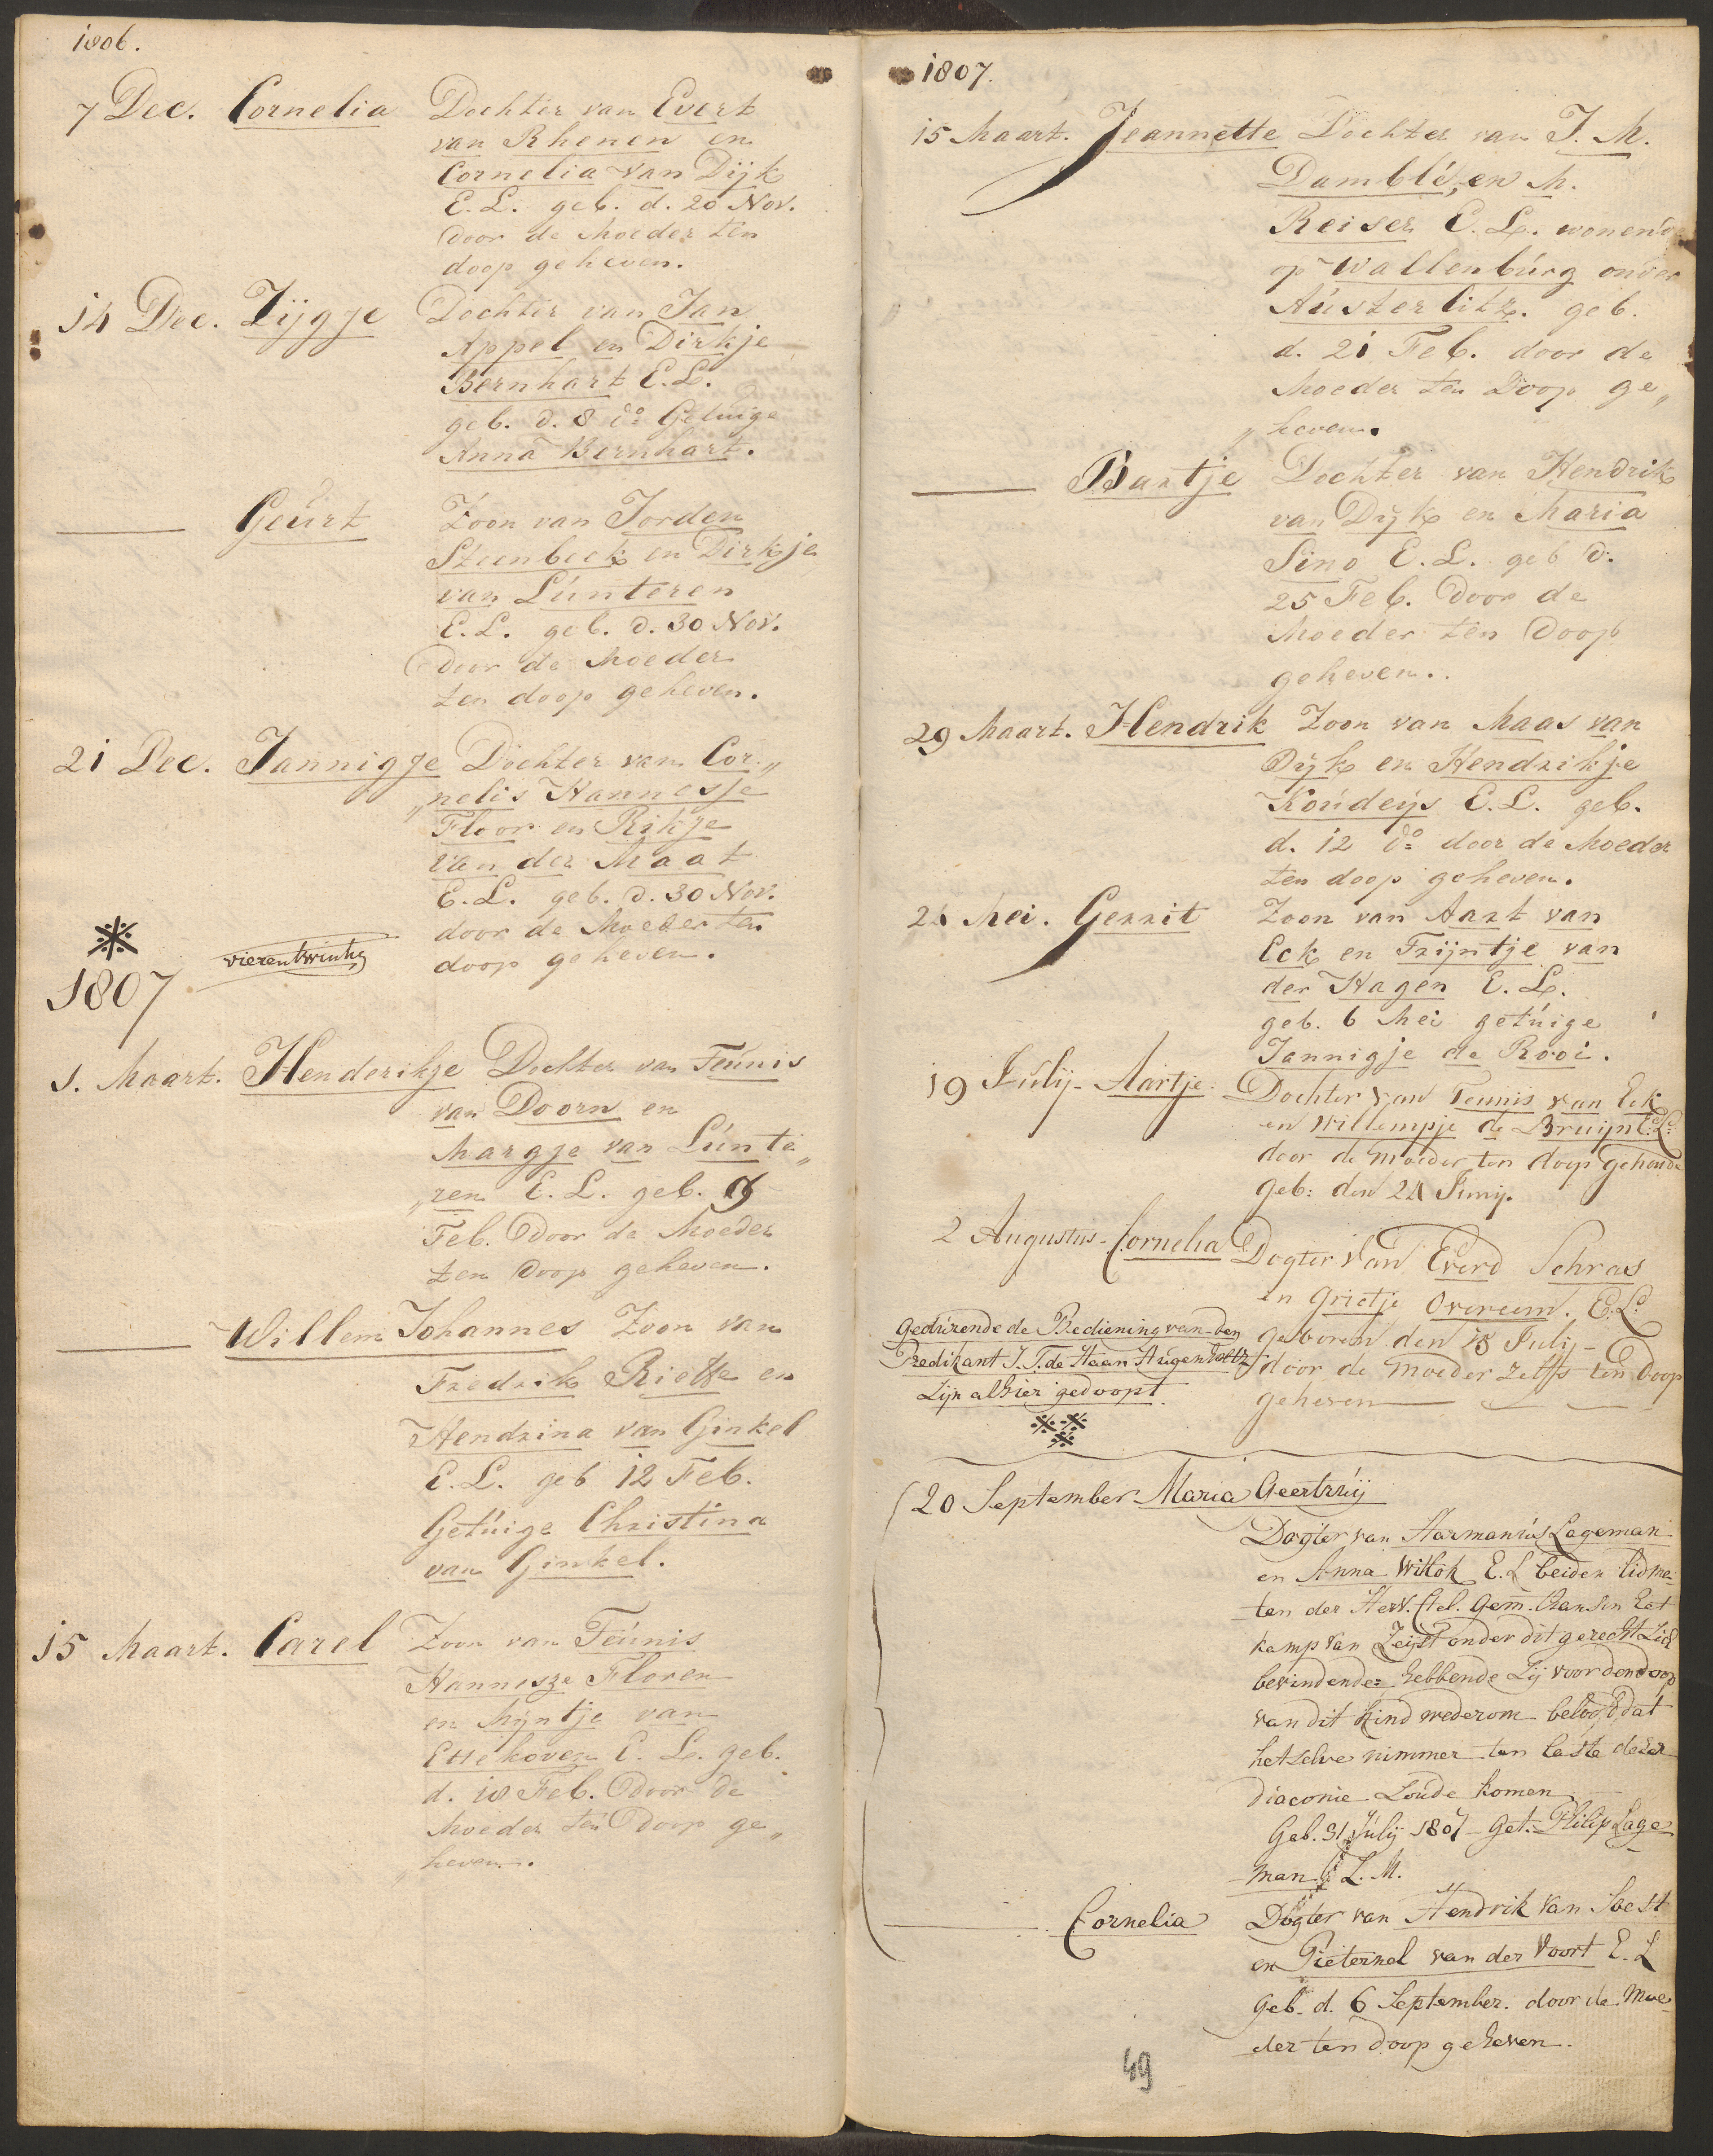 1806.
7 Dec. Cornelia Dochter van Evert
van Rhenen en
Cornelia van Dijk
E. L. geb. d. 20 Nov.
door de Moeder ten
doop geheven.
14 Dec. Zijgje Dochter van Jan
Appel en Dirkje
Bernhart E. L.
geb. d. 8 do Getuige
Anna Bernhart.
Geurt Zoon van Jorden
Steenbeek en Dirkje
van Lunteren
E. L. geb. d. 30 Nov.
door de Moeder
ten doop geheven.
21 Dec. Jannigje Dochter van Cor„
„nelis Hannesje
Floor en Rikje
van der Maat
E. L. geb. d. 30 Nov.
door de Moeder ten
doop geheven.
vierentwintig
1807
1. Maart. Henderikje Dochter van Teunis
van Doorn en
Margje van Lunte„
„ren E. L. geb. 9
Feb. door de Moeder
ten doop geheven.
Willem Johannes Zoon van
Fredrik Rieffe en
Hendrina van Ginkel
E. L. geb 12 Feb.
Getuige Christina
van Ginkel.
15 Maart. Carel Zoon van Teunis
Hannesze Floren
en Mijntje van
Ettekoven E. L. geb.
d. 18 Feb. door de
Moeder ten doop ge„
„heven.
1807.
15 Maart. Jeannette Dochter van J. M.
Damblé, en M.
Reiser E. L. wonend
op Wallenburg onder
Austerlitz. geb.
d. 21 Feb. door de
Moeder ten Doop ge„
„heven.
Bartje Dochter van Hendrik
van Dijk en Maria
Sino E. L. geb d.
25 Feb. door de
Moeder ten doop
geheven..
29 Maart. Hendrik Zoon van Maas van
Dijk en Hendrikje
Koudeijs E. L. geb.
d. 12 do door de Moeder
ten doop geheven.
24 Mei. Gerrit Zoon van Aart van
Eck en Trijntje van
der Hagen E. L.
geb. 6 Mei getuige
Jannigje de Rooi.
19 Julij - Aartje. Dochter van Teunis van Eck
en Willempje de Bruijn E: L:
door de Moeder ten doop gehoude
geb: den 24 Junij.
2 Augustus - Cornelia Dogter van Everd Schras
en Grietje Overeem. E. L.
geboren den 18 Julij -
door de Moeder zelfs ten doop
geheven
Gedurende de Bediening van den
Predikant J. T. de Haan Hugenholtz
Zijn alhier gedoopt.
20 September Maria Geertruij
Dogter van Harmanus Lageman
en Anna Wittok E. L beiden lidma-
ten der Herv. Gem. Zan het
kamp van Zeijst onder dit gerecht zich
bevindende= hebbende zij voor den doop
van dit kind wederom beloofd, dat
hetzelve nimmer ten laste dezer
diaconie zoude komen
Geb. 31 Julij 1807 - Get. Philip Lage-
man L. M.
Cornelia Dogter van Hendrik van Soest
en Pieternel van der Voort E. L
Geb. d. 6 September. door de Moe-
der ten doop geheven.
49